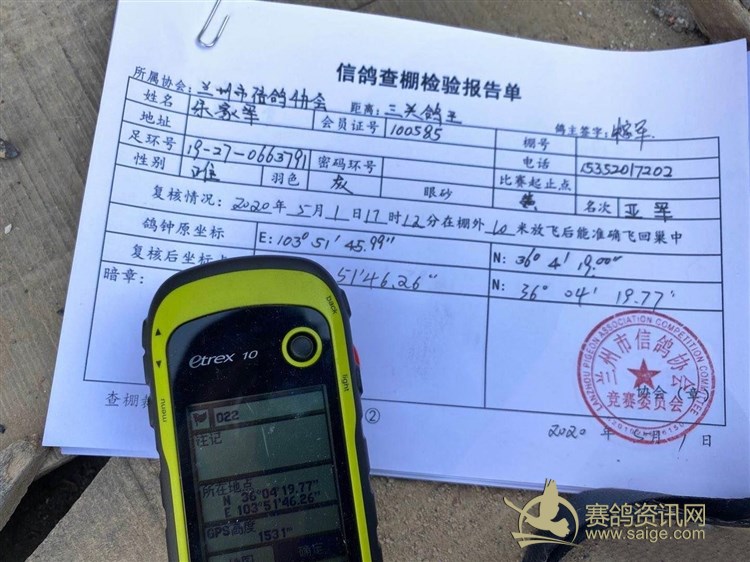 信鸽查棚检验报告单
所属协会: 兰州市信鸽协会 距离: 三关鸽王 鸽主签字:
姓名 会员证号 100585 棚号
地址 电话 15352017202
足环号 19-27-0663791 密码环号 比赛起止点
性别 雄 羽色 灰 眼砂 名次 亚军
复核情况: 2020年5月1日17时12分在棚外10米放飞后能准确飞回巢中
鸽钟原坐标 E: 103° 51' 45.99" N: 36° 4' 19.00"
复核后坐标 51'46.26" N: 36° 04' 19.77"
暗章:
兰州市信鸽协会
竞赛委员会
LANZHOU PIGEON ASSOCIATION COMPETITION COMMITTEE
(章)
查棚
②
2020年5月1日
etrex 10
back
light
menu
022
注记
所在地点
N 36°04'19.77"
E 103°51'46.26"
GPS高度
1531
地图 确定
赛鸽资讯网
www.saige.com